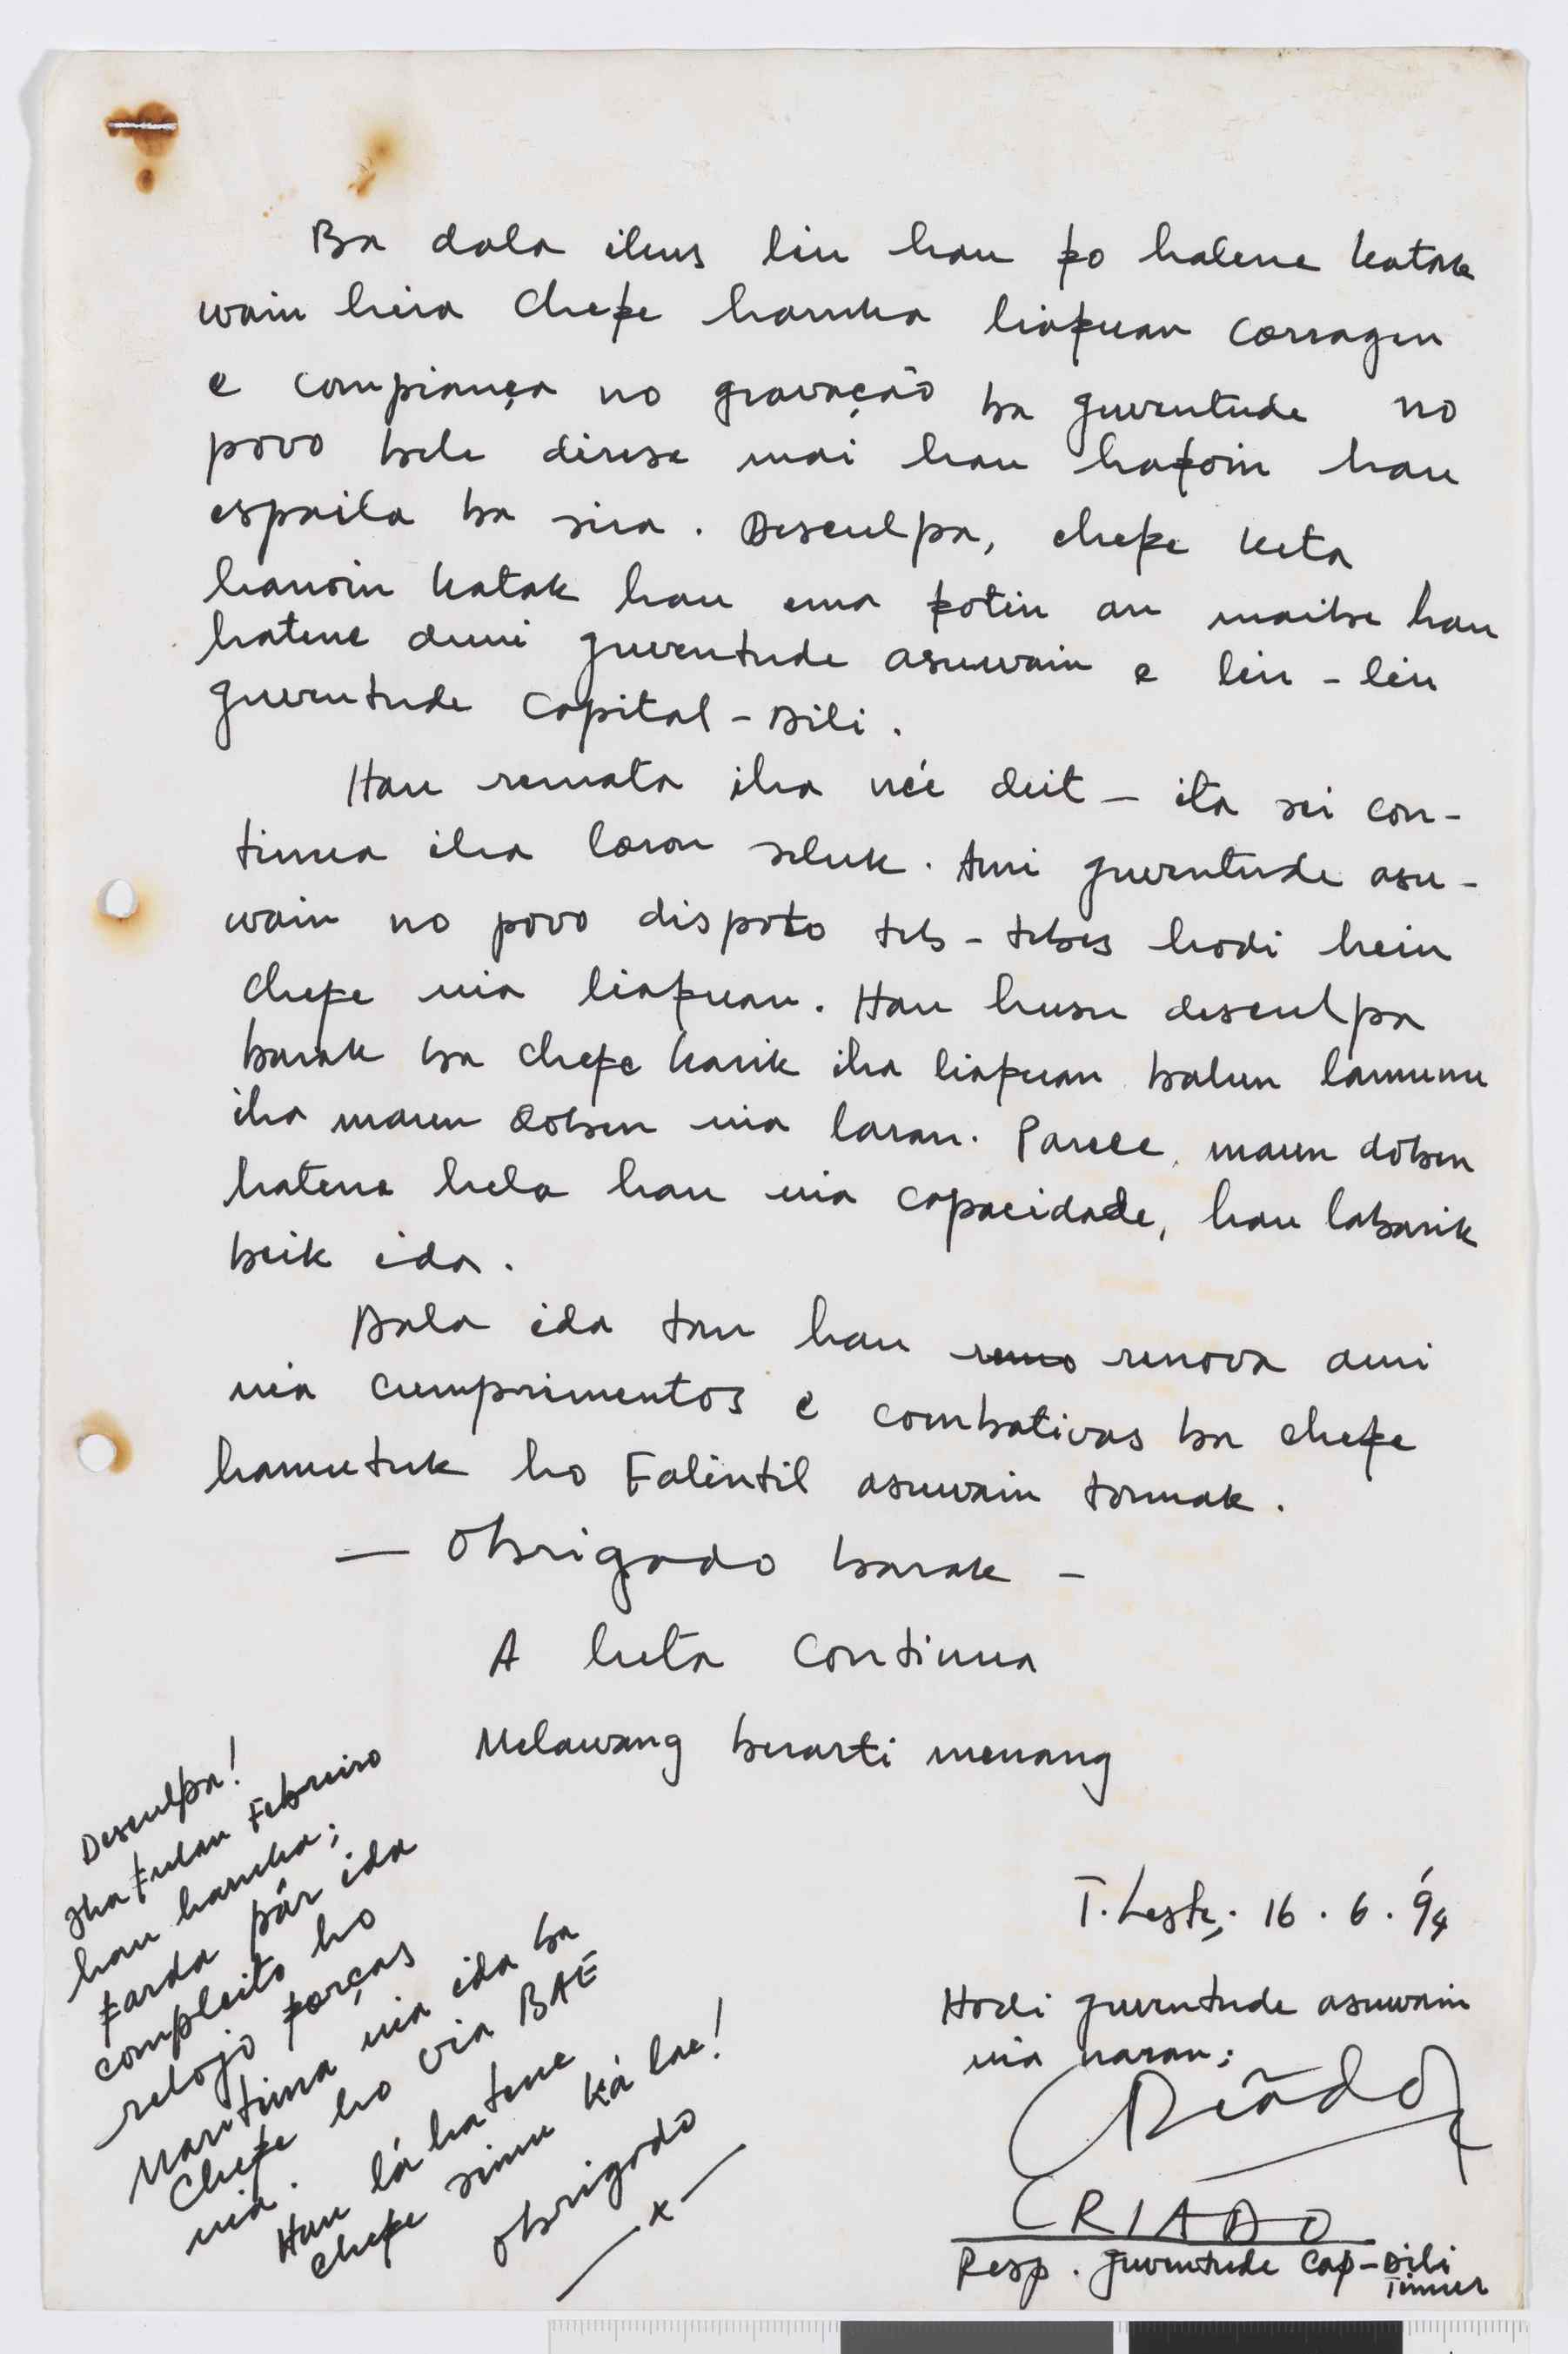 Ba dala ikus liu hau fo hatene katak
wain hira Chefe haruka liafuan corragen
e compiança no gravação ba juventude no
povo bele direse mai hau hafoin hau
espaila ba sira. Desculpa, chefe keta
hanoin katak hau ema fotin an maibe hau
hatene duni juventude asuwain e liu-liu
juventude Capital-Dili.
Hau remata iha neé deit - ita sei con-
tinua iha loron seluk. Ami juventude asu-
wain no povo dispoto tebs-tebes hodi hein
chefe nia liafuan. Hau husu desculpa
barak ba chefe karik iha liafuan balun lamunu
iha maun doben nia laran. Parece, maun doben
hatene hela hau nia capacidade, hau labarik
beik ida.
Dala ida tan hau remo renova ami
nia cumprimentos e combativas ba chefe
hamutuk ho Falintil asuwain tomak.
— Obrigado barak -
A luta continua
Melawang berarti menang
Desculpa!
Iha fulan Febreiro
hau haruka;
farda pár ida
compleito ho
relojo forças
Maritima nia ida ba
Chefe ho via BAE
nia.
Hau lá hatene
chefe simu ká lae!
obrigado
—x—
T. Leste, 16.6.'94
Hodi juventude asuwain
nia naran;
Criãdo
CRIADO
Resp. Juventude Cap-Dili
Timur